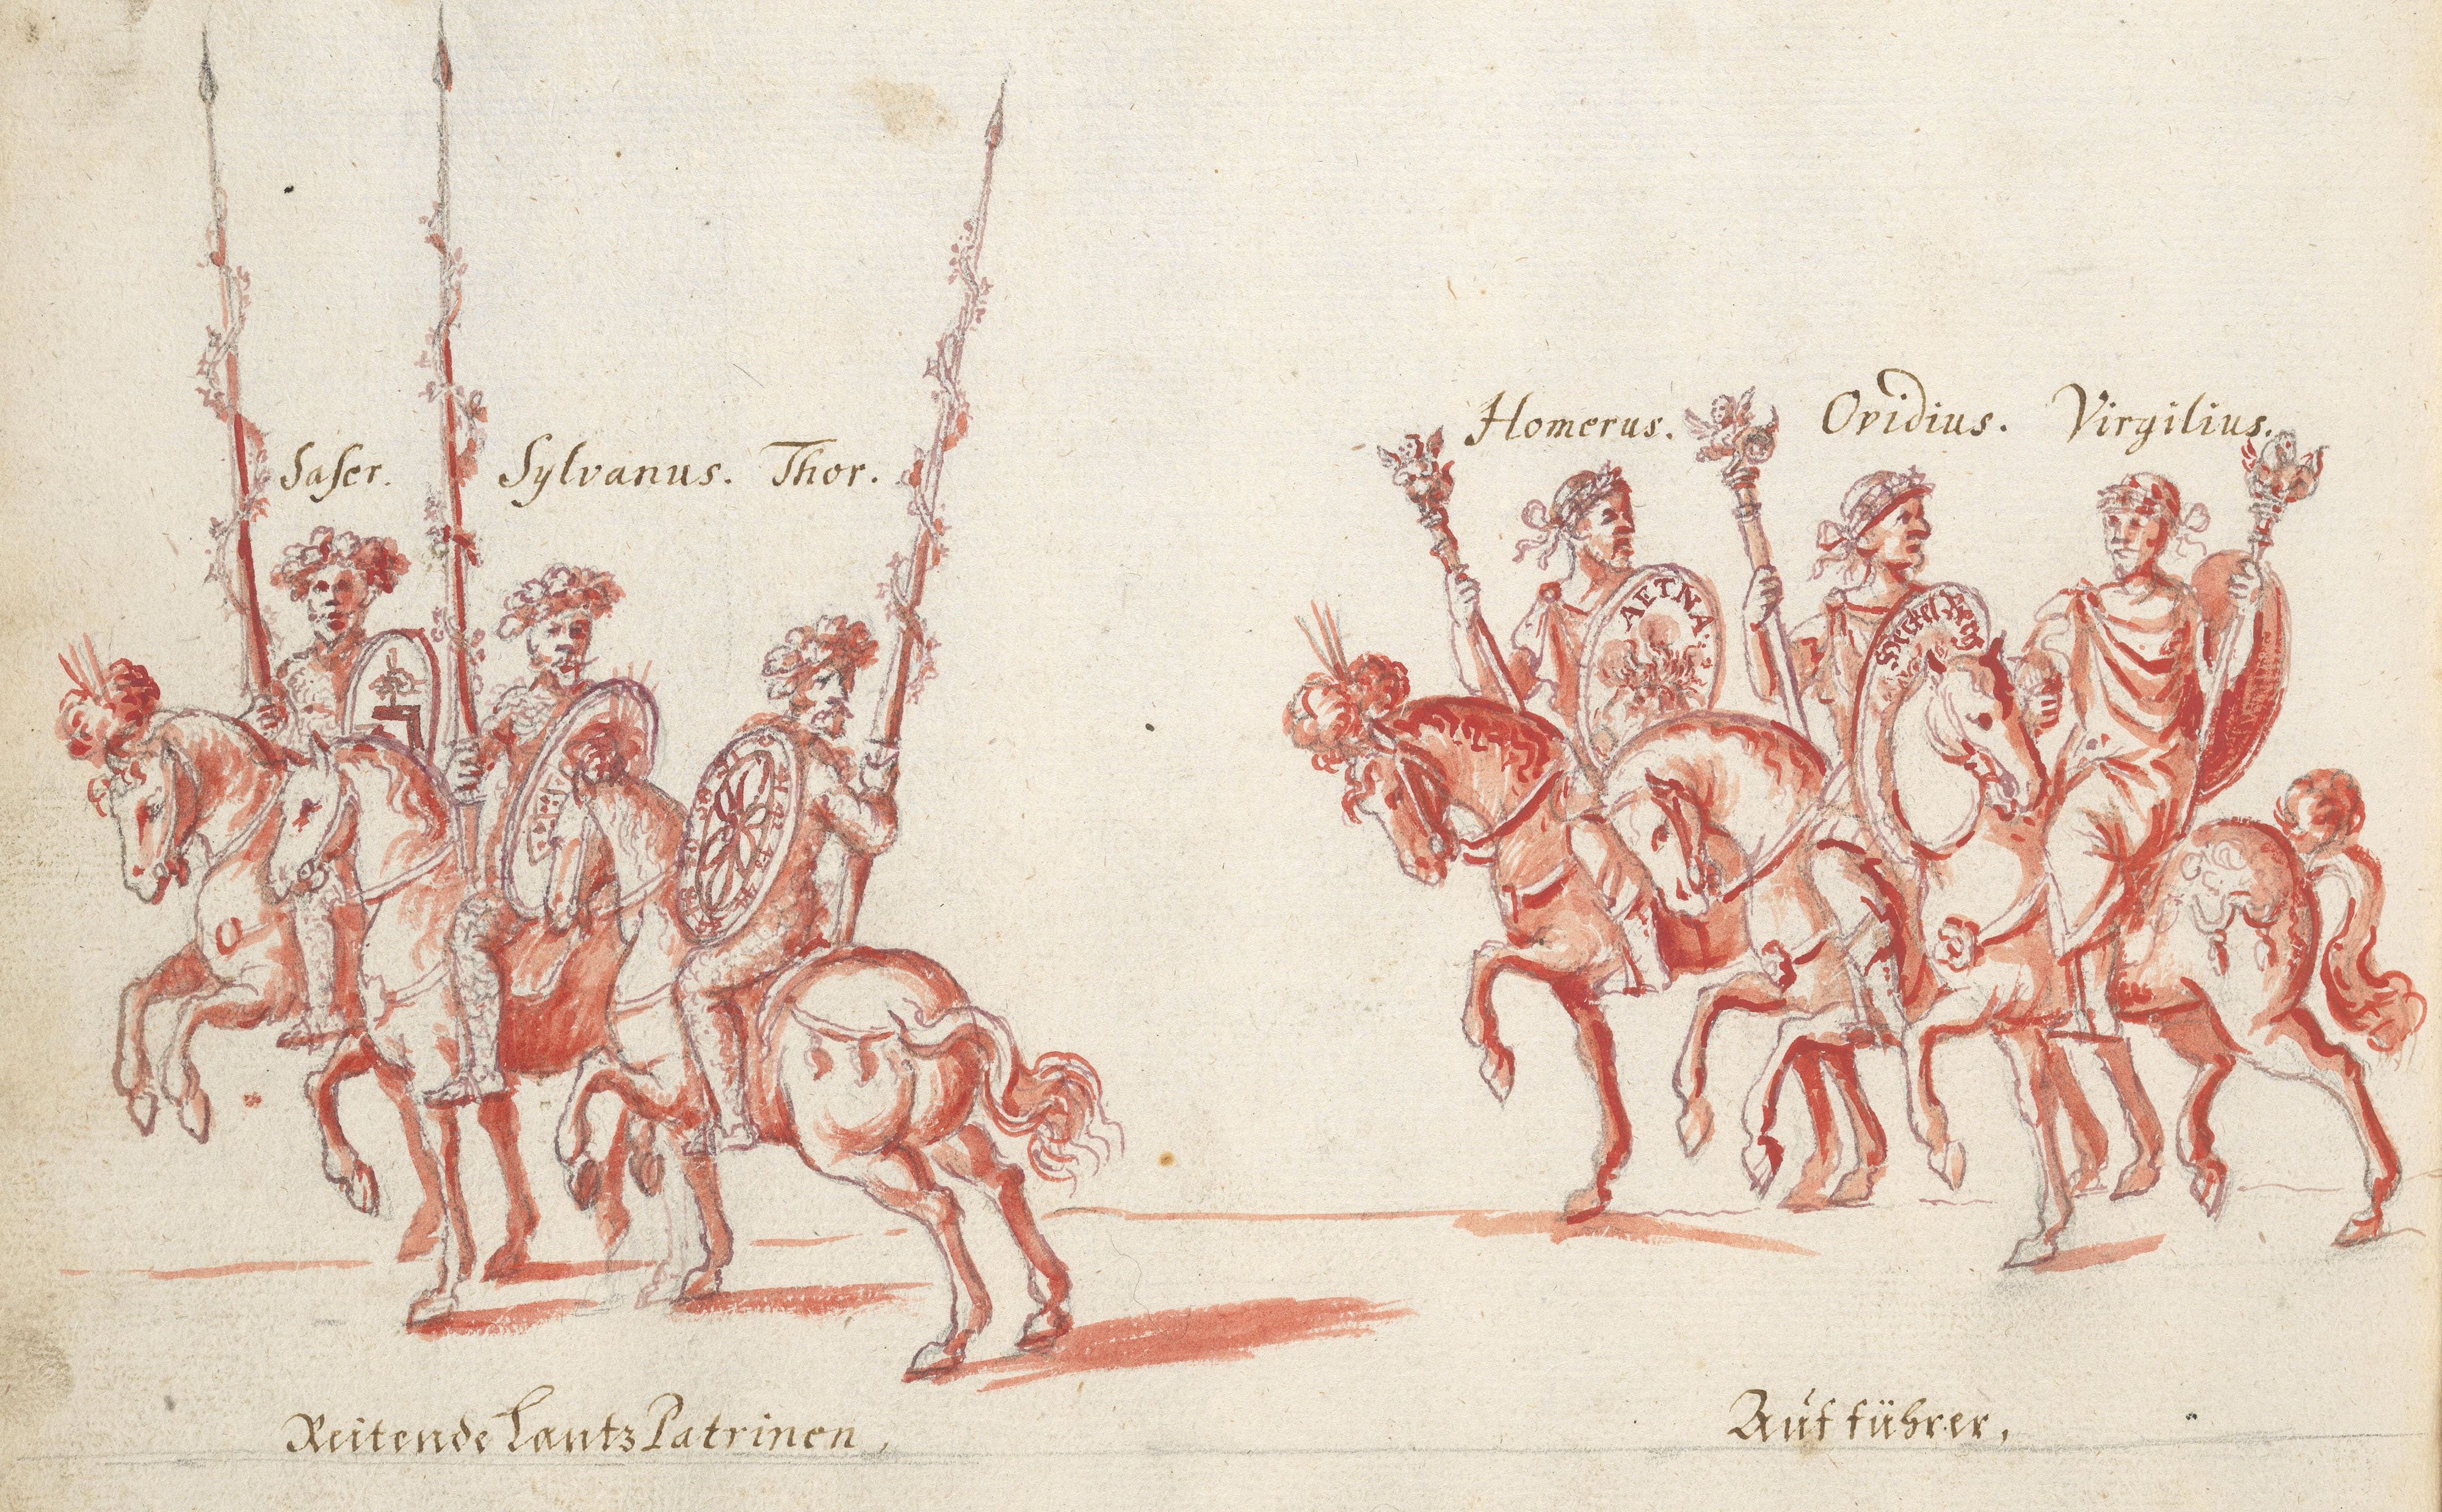 Saser. Sylvanus. Thor.
Homerus. Ovidius. Virgilius.
AETNA.
Reitende Lantz Patrinen,
Auf führer,